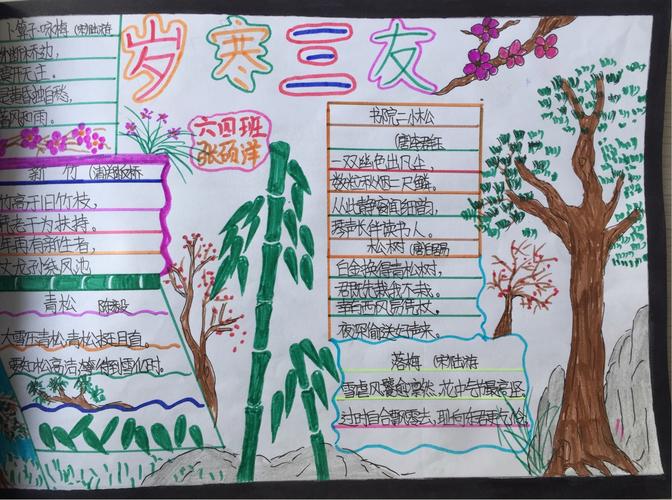 岁寒三友
六四班
张硕洋
卜算子·咏梅 (宋)陆游
外断桥边，
寞开无主。
是黄昏独自愁，
着风和雨。
新竹 (清)郑板桥
竹高于旧竹枝，
老干为扶持。
年再有新生者，
丈龙孙绕凤池
青松 陈毅
大雪压青松,青松挺且直。
要知松高洁,待到雪化时。
书院二小松
(唐)李群玉
一双幽色出凡尘，
数粒秋烟二尺鳞。
从此静窗闻细韵，
琴声长伴读书人。
松树 (唐)白居易
白金换得青松树，
君既先栽我不栽。
幸有西风易凭仗，
夜深偷送好声来。
落梅 (宋)陆游
雪虐风饕愈凛然,花中气节最高坚
过时自合飘零去,耻向东君更乞怜